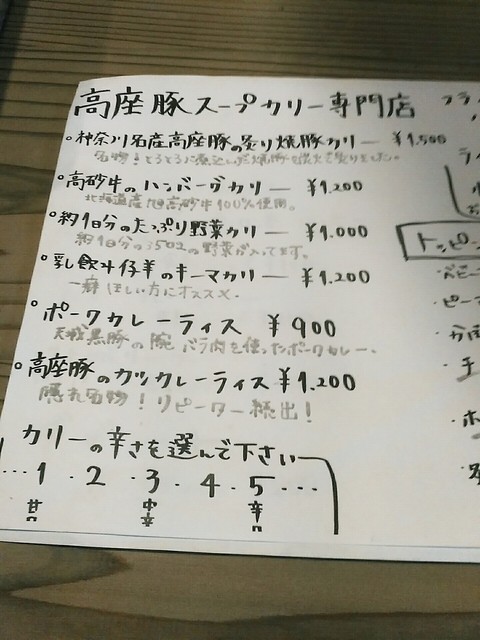 高座豚スープカリー専門店
・神奈川名産高座豚の炙り焼豚カリー ― ¥1,500
名物!とろとろに煮込んだ焼豚を炭火で炙りました。
・高砂牛のハンバーグカリー ― ¥1,200
北海道産 高砂牛100%使用。
・約1日分のたっぷり野菜カリー ― ¥1,000
約1日分の350gの野菜が入ってます。
・乳飲み仔羊のキーマカリー ― ¥1,200
一癖ほしい方にオススメ。
・ポークカレーライス ¥900
黒豚の腕、バラ肉を使ったポークカレー。
・高座豚のカツカレーライス ¥1,200
隠れ名物!リピーター続出!
カリーの辛さを選んで下さい
…1・2・3・4・5…
甘口 中辛 辛口
フラ
ラ
トッピン
・ベビー
・ピーマ
・チ